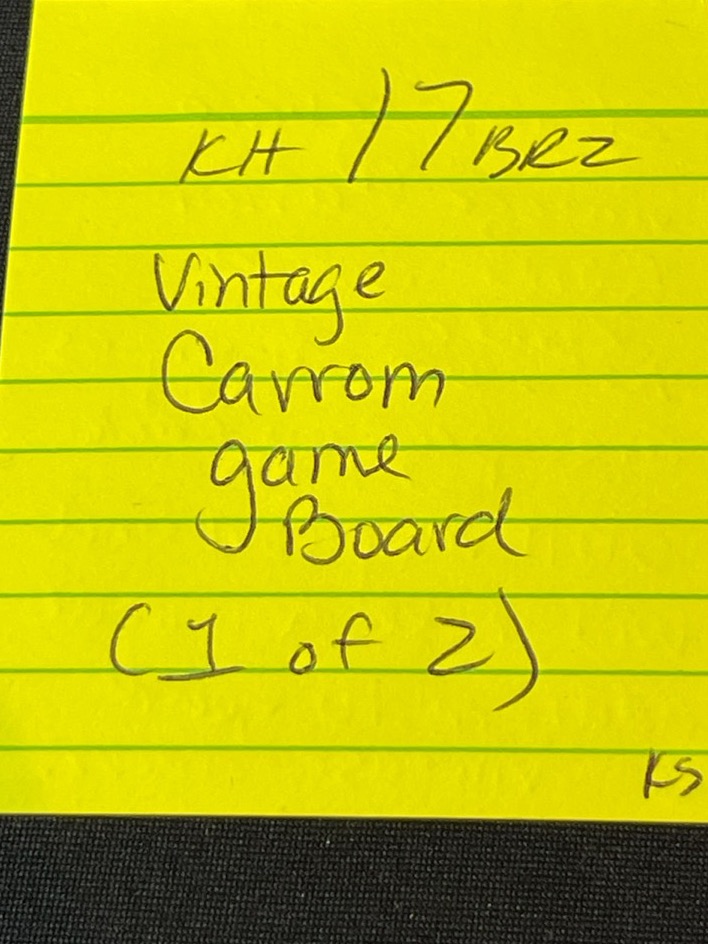 KH 17 BRZ
Vintage
Carrom
game
Board
(1 of 2)
KS